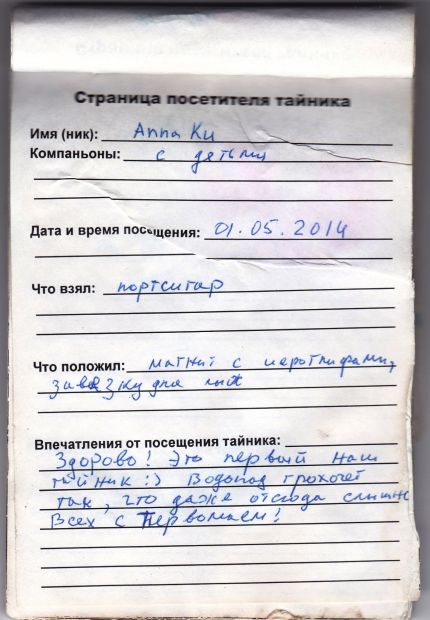 Страница посетителя тайника
Имя (ник): Anna Ku
Компаньоны: с детьми
Дата и время посещения: 01.05.2014
Что взял: портсигар
Что положил: магнит с иероглифами,
завязку для лыж
Впечатления от посещения тайника:
Здорово! Это первый наш
тайник :) Водопад грохочет
так, что даже отсюда слышно
Всех с Первомаем!